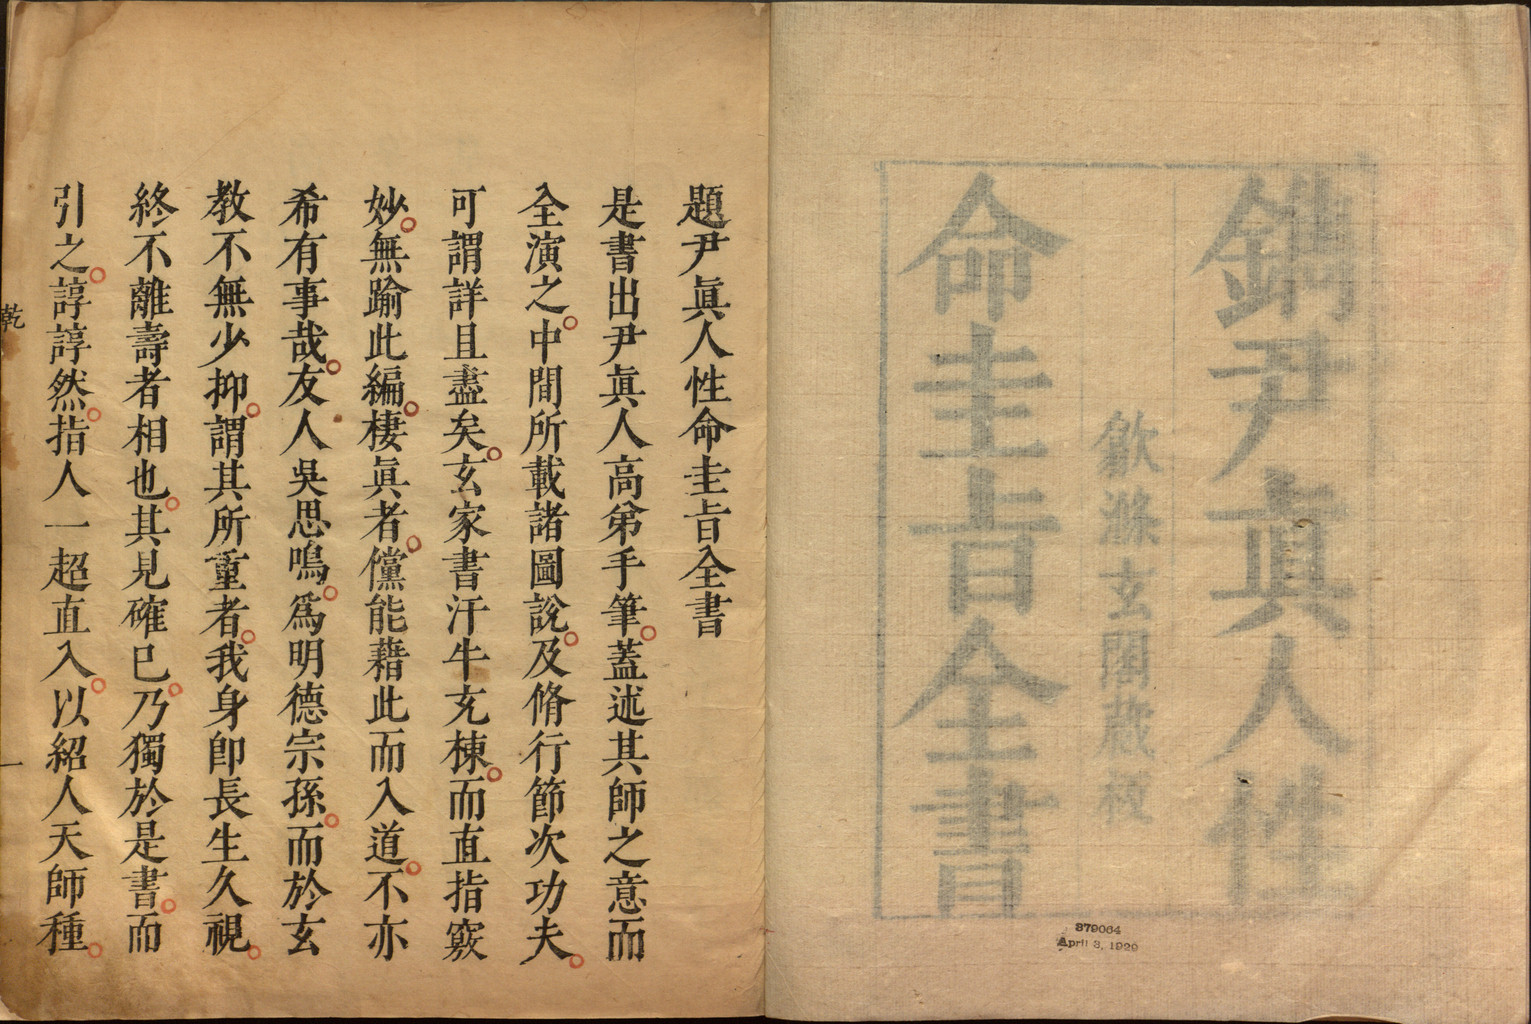 鐫尹眞人性
歙滌玄閣蔵板
命圭旨全書
379064
April 3, 1920
題尹眞人性命圭旨全書
是書出尹眞人高弟手筆。蓋述其師之意而
全演之。中間所載諸圖說。及脩行節次功夫。
可謂詳且盡矣。玄家書汗牛充棟。而直指竅
妙。無踰此編。棲眞者。儻能藉此而入道。不亦
希有事哉。友人吳思鳴。爲明德宗孫。而於玄
教不無少抑。謂其所重者。我身卽長生久視。
終不離壽者相也。其見確已。乃獨於是書。而
引之。諄諄然。指人一超直入。以紹人天師種。
乾
一